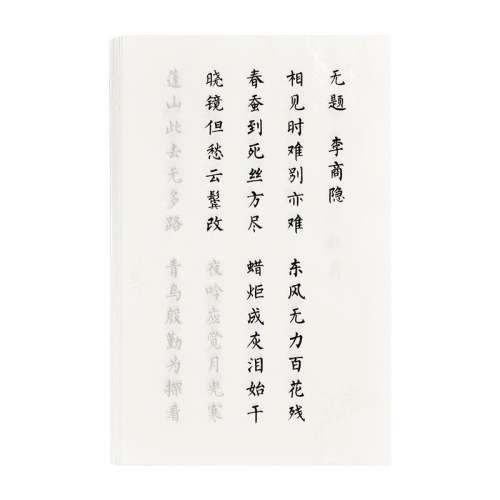 无题 李商隐
相见时难别亦难 东风无力百花残
春蚕到死丝方尽 蜡炬成灰泪始干
晓镜但愁云鬓改 夜吟应觉月光寒
蓬山此去无多路 青鸟殷勤为探看